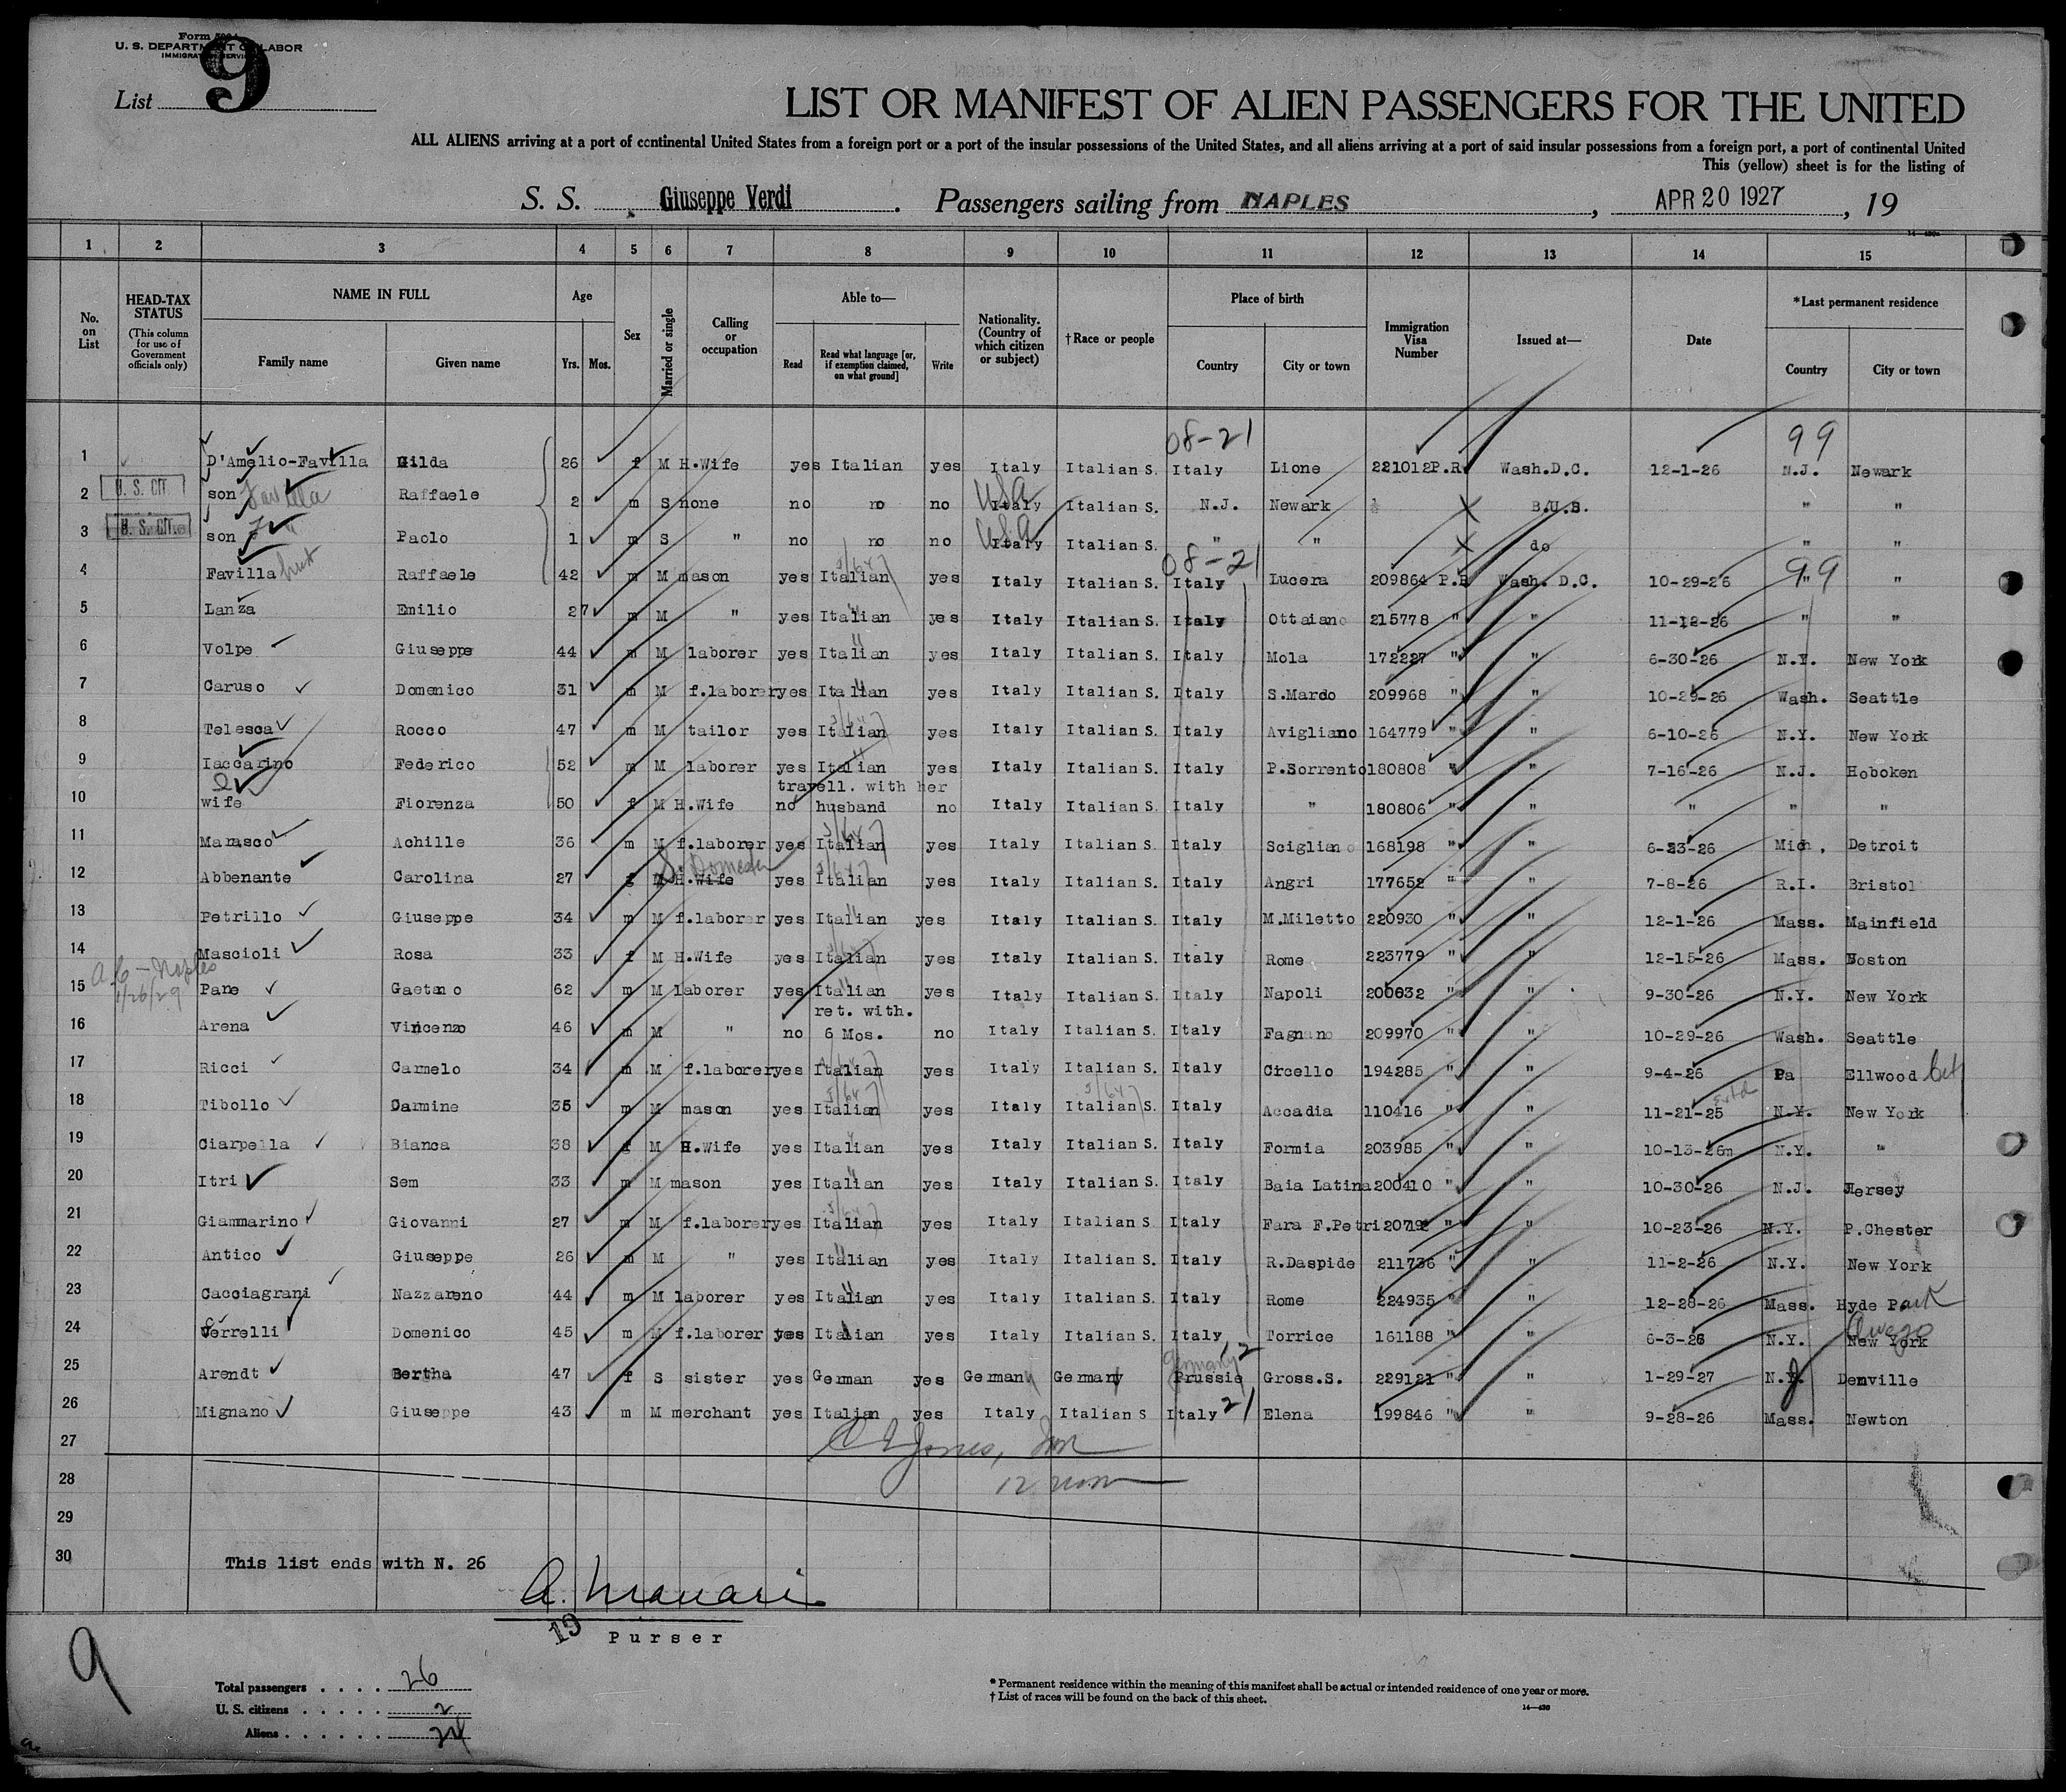 Form 500
U. S. DEPARTMENT OF LABOR
IMMIGRATION SERVICE
List 9
LIST OR MANIFEST OF ALIEN PASSENGERS FOR THE UNITED
ALL ALIENS arriving at a port of continental United States from a foreign port or a port of the insular possessions of the United States, and all aliens arriving at a port of said insular possessions from a foreign port, a port of continental United
This (yellow) sheet is for the listing of
S. S. Giuseppe Verdi . Passengers sailing from NAPLES , APR 20 1927 , 19
1 2 3 4 5 6 7 8 9 10 11 12 13 14 15
No. on List
HEAD-TAX STATUS (This column for use of Government officials only)
NAME IN FULL Family name Given name
Age Yrs. Mos.
Sex
Married or single
Calling or occupation
Able to— Read Read what language [or, if exemption claimed, on what ground] Write
Nationality. (Country of which citizen or subject)
†Race or people
Place of birth Country City or town
Immigration Visa Number
Issued at—
Date
*Last permanent residence Country City or town
08-21 99
1 D'Amelio-Favilla Gilda 26 f M H.Wife yes Italian yes Italy Italian S. Italy Lione 221012P.R. Wash.D.C. 12-1-26 N.J. Newark
2 U. S. CIT. son Favilla Raffaele 2 m S none no no no USA Italy Italian S. N.J. Newark B.U.S. " "
3 U. S. CIT. son Paolo 1 m S " no no no USA Italy Italian S. " " do " "
08-21 99
4 Favilla Raffaele 42 m M mason yes Italian yes Italy Italian S. Italy Lucera 209864 P.R Wash. D.C. 10-29-26 " "
5 Lanza Emilio 27 m M " yes Italian yes Italy Italian S. Italy Ottaiano 215778 " " 11-12-26 " "
6 Volpe Giuseppe 44 m M laborer yes Italian yes Italy Italian S. Italy Mola 172227 " " 6-30-26 N.Y. New York
7 Caruso Domenico 31 m M f.laborer yes Italian yes Italy Italian S. Italy S.Marco 209968 " " 10-29-26 Wash. Seattle
8 Telesca Rocco 47 m M tailor yes Italian yes Italy Italian S. Italy Avigliano 164779 " " 6-10-26 N.Y. New York
9 Iaccarino Federico 52 m M laborer yes Italian yes Italy Italian S. Italy P.Sorrento 180808 " " 7-16-26 N.J. Hoboken
travell. with her
10 wife Fiorenza 50 f M H.Wife no husband no Italy Italian S. Italy " 180806 " " " " "
11 Marasco Achille 36 m M f.laborer yes Italian yes Italy Italian S. Italy Scigliano 168198 " " 6-23-26 Mich. Detroit
12 Abbenante Carolina 27 f M H.Wife yes Italian yes Italy Italian S. Italy Angri 177652 " " 7-8-26 R.I. Bristol
13 Petrillo Giuseppe 34 m M f.laborer yes Italian yes Italy Italian S. Italy M.Miletto 220930 " " 12-1-26 Mass. Mainfield
14 Mascioli Rosa 33 f M H.Wife yes Italian yes Italy Italian S. Italy Rome 223779 " " 12-15-26 Mass. Boston
Naples 1/26/29
15 Pane Gaetano 62 m M laborer yes Italian yes Italy Italian S. Italy Napoli 200632 " " 9-30-26 N.Y. New York
ret. with.
16 Arena Vincenzo 46 m M " no 6 Mos. no Italy Italian S. Italy Fagnano 209970 " " 10-29-26 Wash. Seattle
17 Ricci Carmelo 34 m M f.laborer yes Italian yes Italy Italian S. Italy Circello 194285 " " 9-4-26 Pa Ellwood
18 Tibollo Carmine 35 m M mason yes Italian yes Italy Italian S. Italy Accadia 110416 " " 11-21-25 N.Y. New York
19 Ciarpella Bianca 38 f M H.Wife yes Italian yes Italy Italian S. Italy Formia 203985 " " 10-13-26 N.Y. "
20 Itri Sem 33 m M mason yes Italian yes Italy Italian S. Italy Baia Latina 200410 " " 10-30-26 N.J. Jersey
21 Giammarino Giovanni 27 m M f.laborer yes Italian yes Italy Italian S Italy Fara F.Petri " " 10-23-26 N.Y. P.Chester
22 Antico Giuseppe 26 m M " yes Italian yes Italy Italian S. Italy R.Daspide 211736 " " 11-2-26 N.Y. New York
23 Cacciagrani Nazzareno 44 m M laborer yes Italian yes Italy Italian S. Italy Rome 224935 " " 12-28-26 Mass. Hyde Park
24 Cerrelli Domenico 45 m M f.laborer yes Italian yes Italy Italian S. Italy Torrice 161188 " " 6-3-26 N.Y. New York Owego
25 Arendt Bertha 47 f S sister yes German yes German Germany Prussie Germany Gross.S. 229121 " " 1-29-27 N.J. Denville
26 Mignano Giuseppe 43 m M merchant yes Italian yes Italy Italian S Italy 21 Elena 199846 " " 9-28-26 Mass. Newton
27
28 12 noon
29
30 This list ends with N. 26
Purser
19
9
Total passengers . . . . 26
U. S. citizens . . . . . 2
Aliens . . . . . . 24
* Permanent residence within the meaning of this manifest shall be actual or intended residence of one year or more.
† List of races will be found on the back of this sheet.
14—430